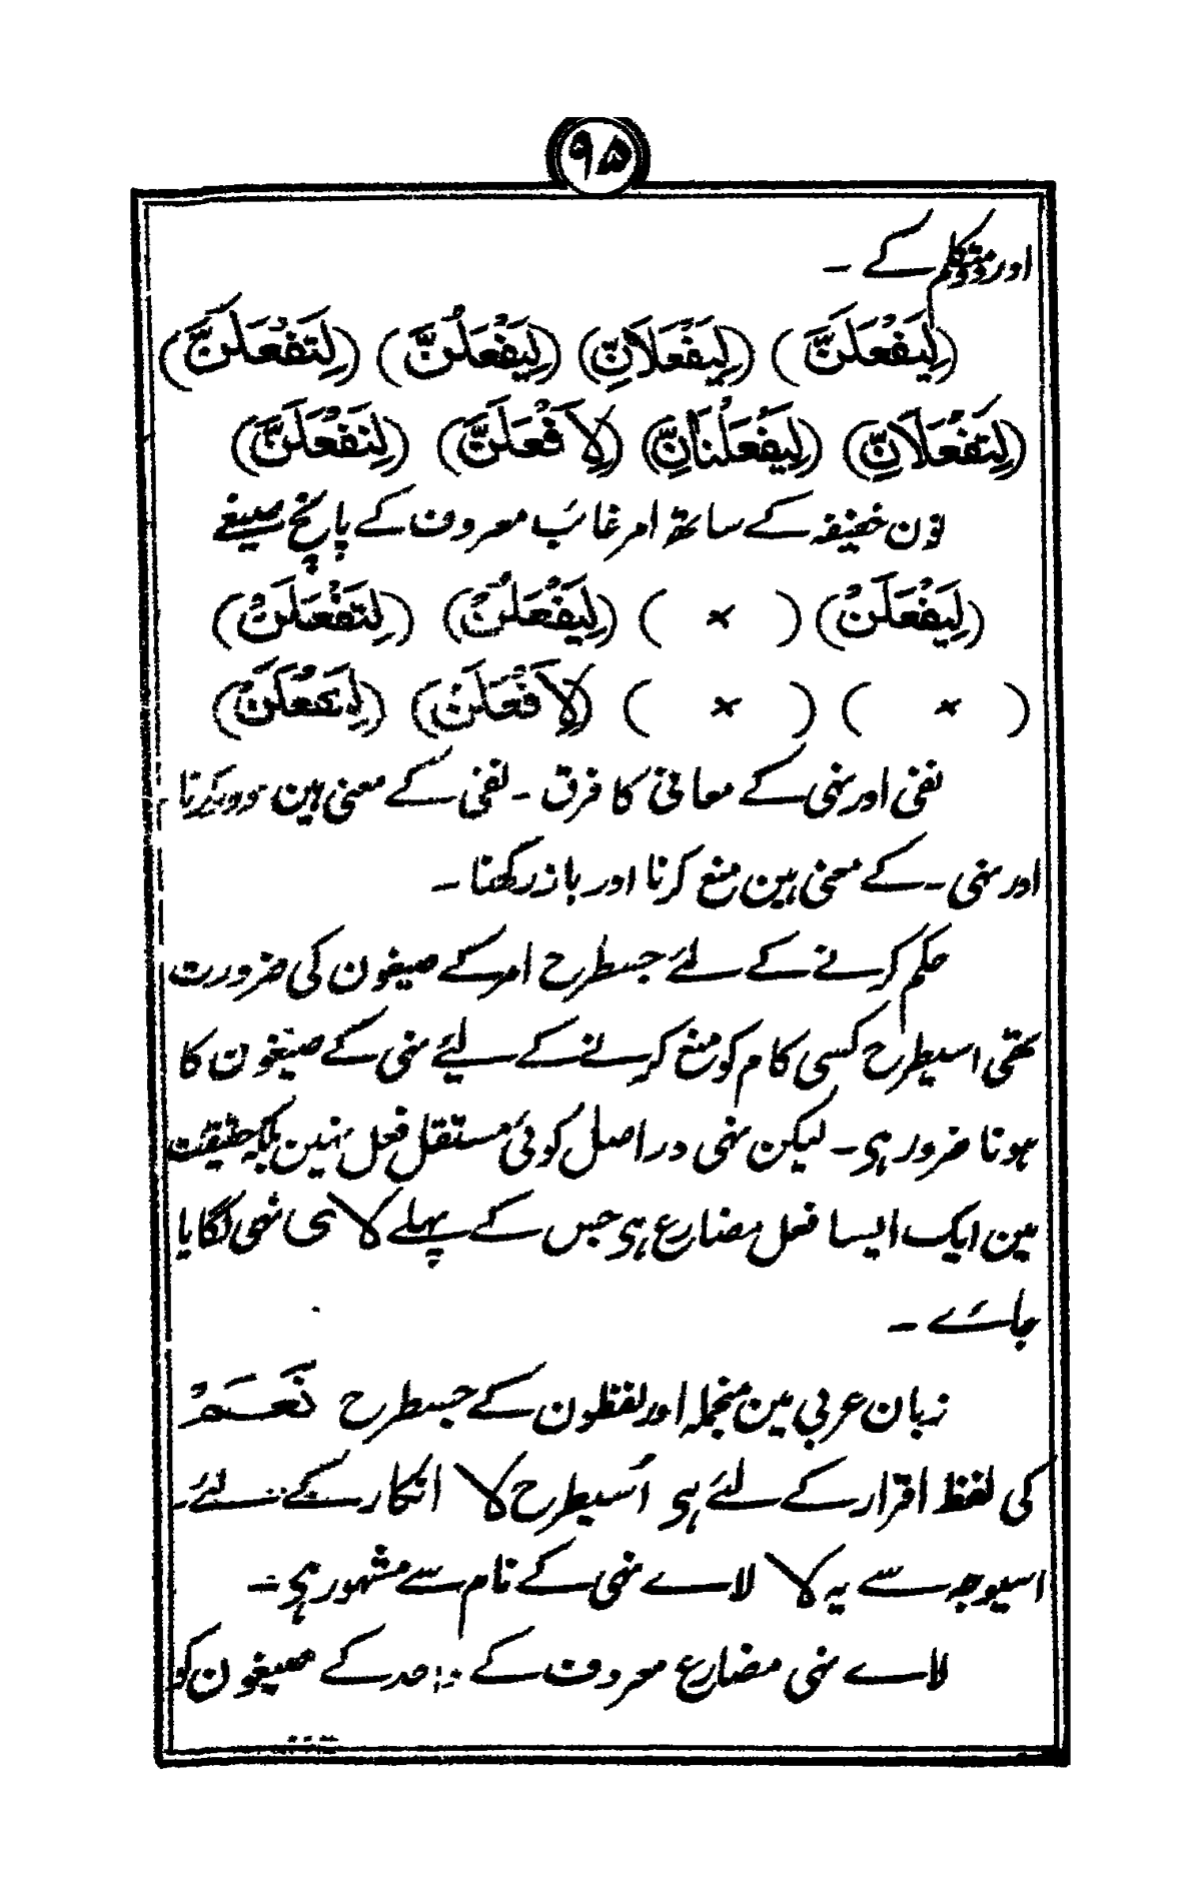 ۹۵
اور دو متکلم کے ۔
(لِيَفْعَلَنَّ) (لِيَفْعَلَانِّ) (لِيَفْعَلُنَّ) (لِتَفْعَلَنَّ)
(لِتَفْعَلَانِّ) (لِيَفْعَلْنَانِّ) (لِاَفْعَلَنَّ) (لِنَفْعَلَنَّ)
نون خفیفہ کے ساتھ امر غائب معروف کے پانچ صیغے
(لِيَفْعَلَنْ) ( × ) (لِيَفْعَلُنْ) (لِتَفْعَلَنْ)
( × ) ( × ) (لِاَفْعَلَنْ) (لِنَفْعَلَنْ)
نفی اور نہی کے معانی کا فرق ۔ نفی کے معنی ہین دور کرنا
اور نہی ۔ کے معنی ہین منع کرنا اور باز رکھنا ۔
حکم کرنے کے لئے جسطرح امر کے صیغون کی ضرورت
تھی اسیطرح کسی کام کو منع کرنے کے لیئے نہی کے صیغون کا
ہونا ضرور ہی ۔ لیکن نہی در اصل کوئی مستقل فعل نہین بلکہ حقیقت
مین ایک ایسا فعل مضارع ہی جس کے پہلے لا ی نہی لگایا
جائے ۔
زبان عربی مین منجملہ اور لفظون کے جسطرح نَعَمْ
کی لفظ اقرار کے لئے ہی اُسیطرح لا انکار کے لئے ۔
اسیوجہ سے یہ لا لاے نہی کے نام سے مشہور ہی ۔
لاے نہی مضارع معروف کے واحد کے صیغون کو